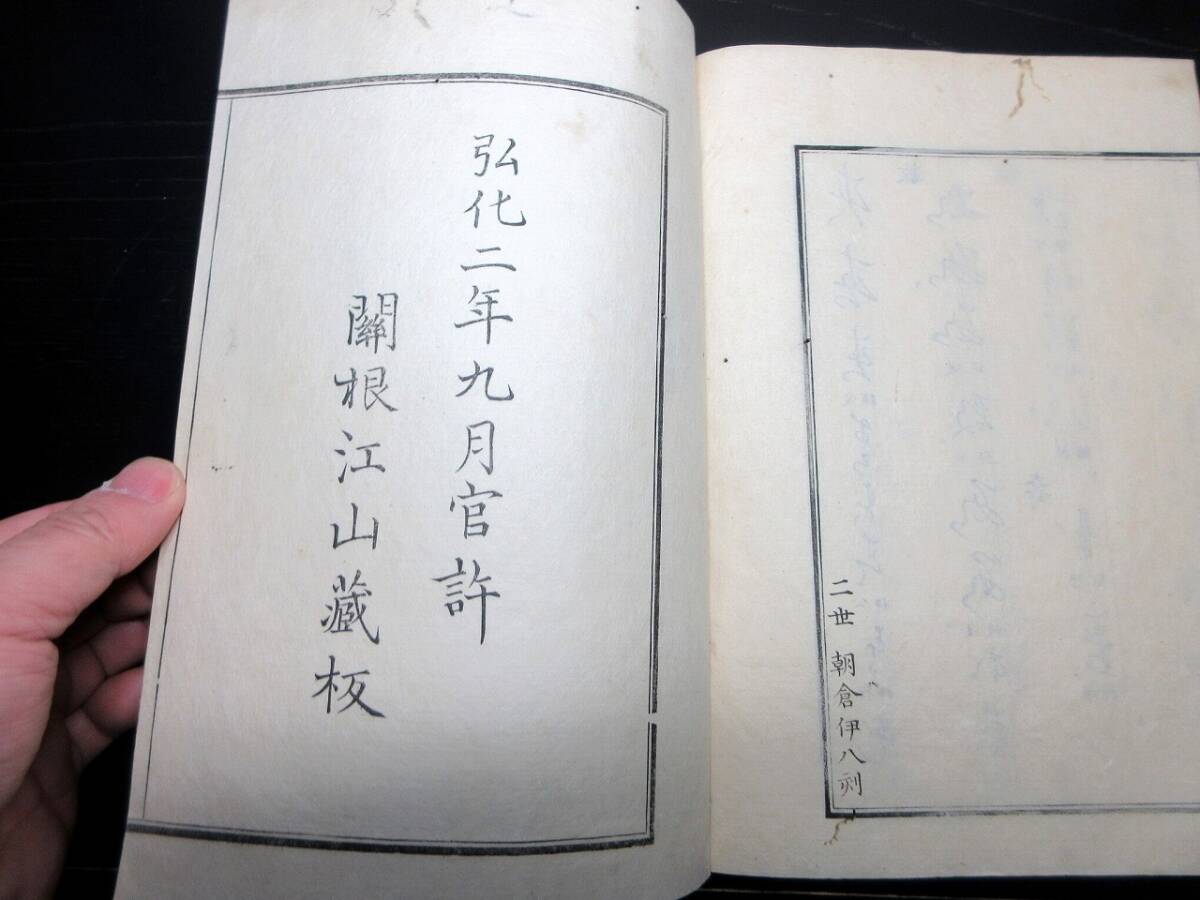 二世 朝倉伊八刻
弘化二年九月官許
關根江山藏板